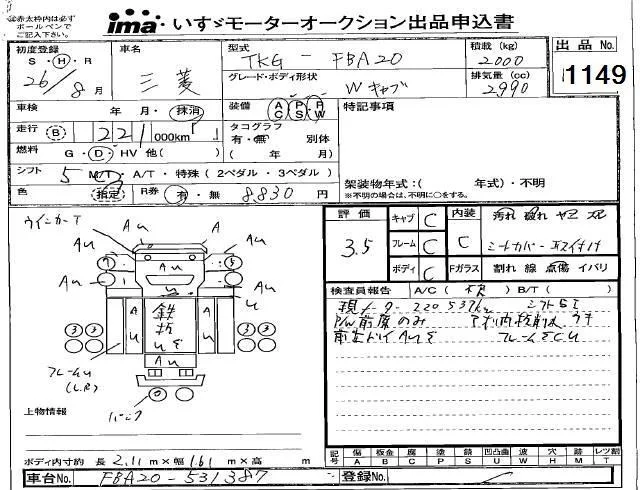 ㊟赤太枠内は必ず
ボールペンで
ご記入下さい。
ima いすゞモーターオークション出品申込書
初度登録
S・H・R
26/8月
車名
三菱
型式
TKG - FBA20
積載(kg)
2000
出品No.
1149
グレード・ボディ形状
Wキャブ
排気量(cc)
2990
車検 年・月・抹消
装備 AC PS PW
特記事項
走行 B 221 000km
タコグラフ
有・無 別体
燃料 G・D・HV 他( )
( 年 月)
シフト 5 M/T・A/T・特殊(2ペダル・3ペダル)
架装物年式:( 年式)・不明
※不明の場合は、不明に○をする。
色 指定 R券 有・無 8,830 円
評価
3.5
キャブ C
内装 C
汚れ 破れ ヤニ スレ
フレーム C
シートカバー
ボディ C
Fガラス
割れ 線 点傷 イバリ
検査員報告 A/C( ) B/T( )
ウインカーT
A
A
Au
Au
Au
Au
Au
Au
U
鉄板
Au
U
フレームU
(L.R)
P/W前席のみ
フレームSCU
上物情報
記号
傷 板金 腐 塗 錆 凹凸曲 波 穴 跡 レツ割
A B C P S U W H M T
ボディ内寸約 長 2.11 m×幅 1.61 m×高 m
車台No. FBA20-531387
登録No.